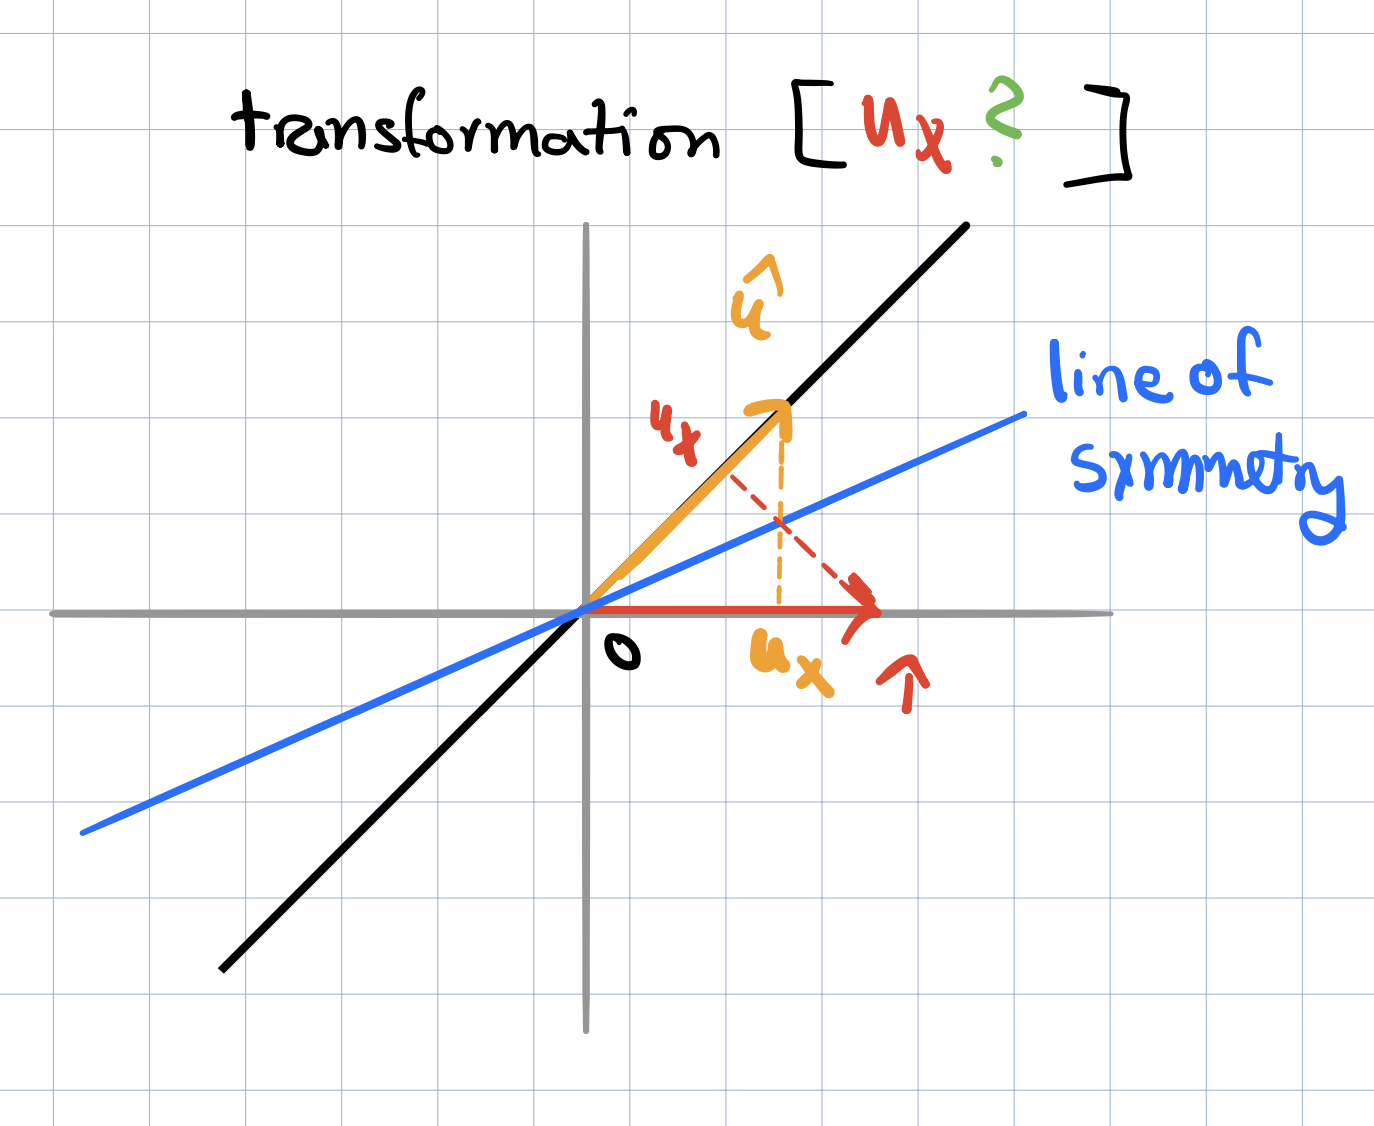 transformation [ u_x ? ]
û
line of
symmetry
u_x
0
u_x
1